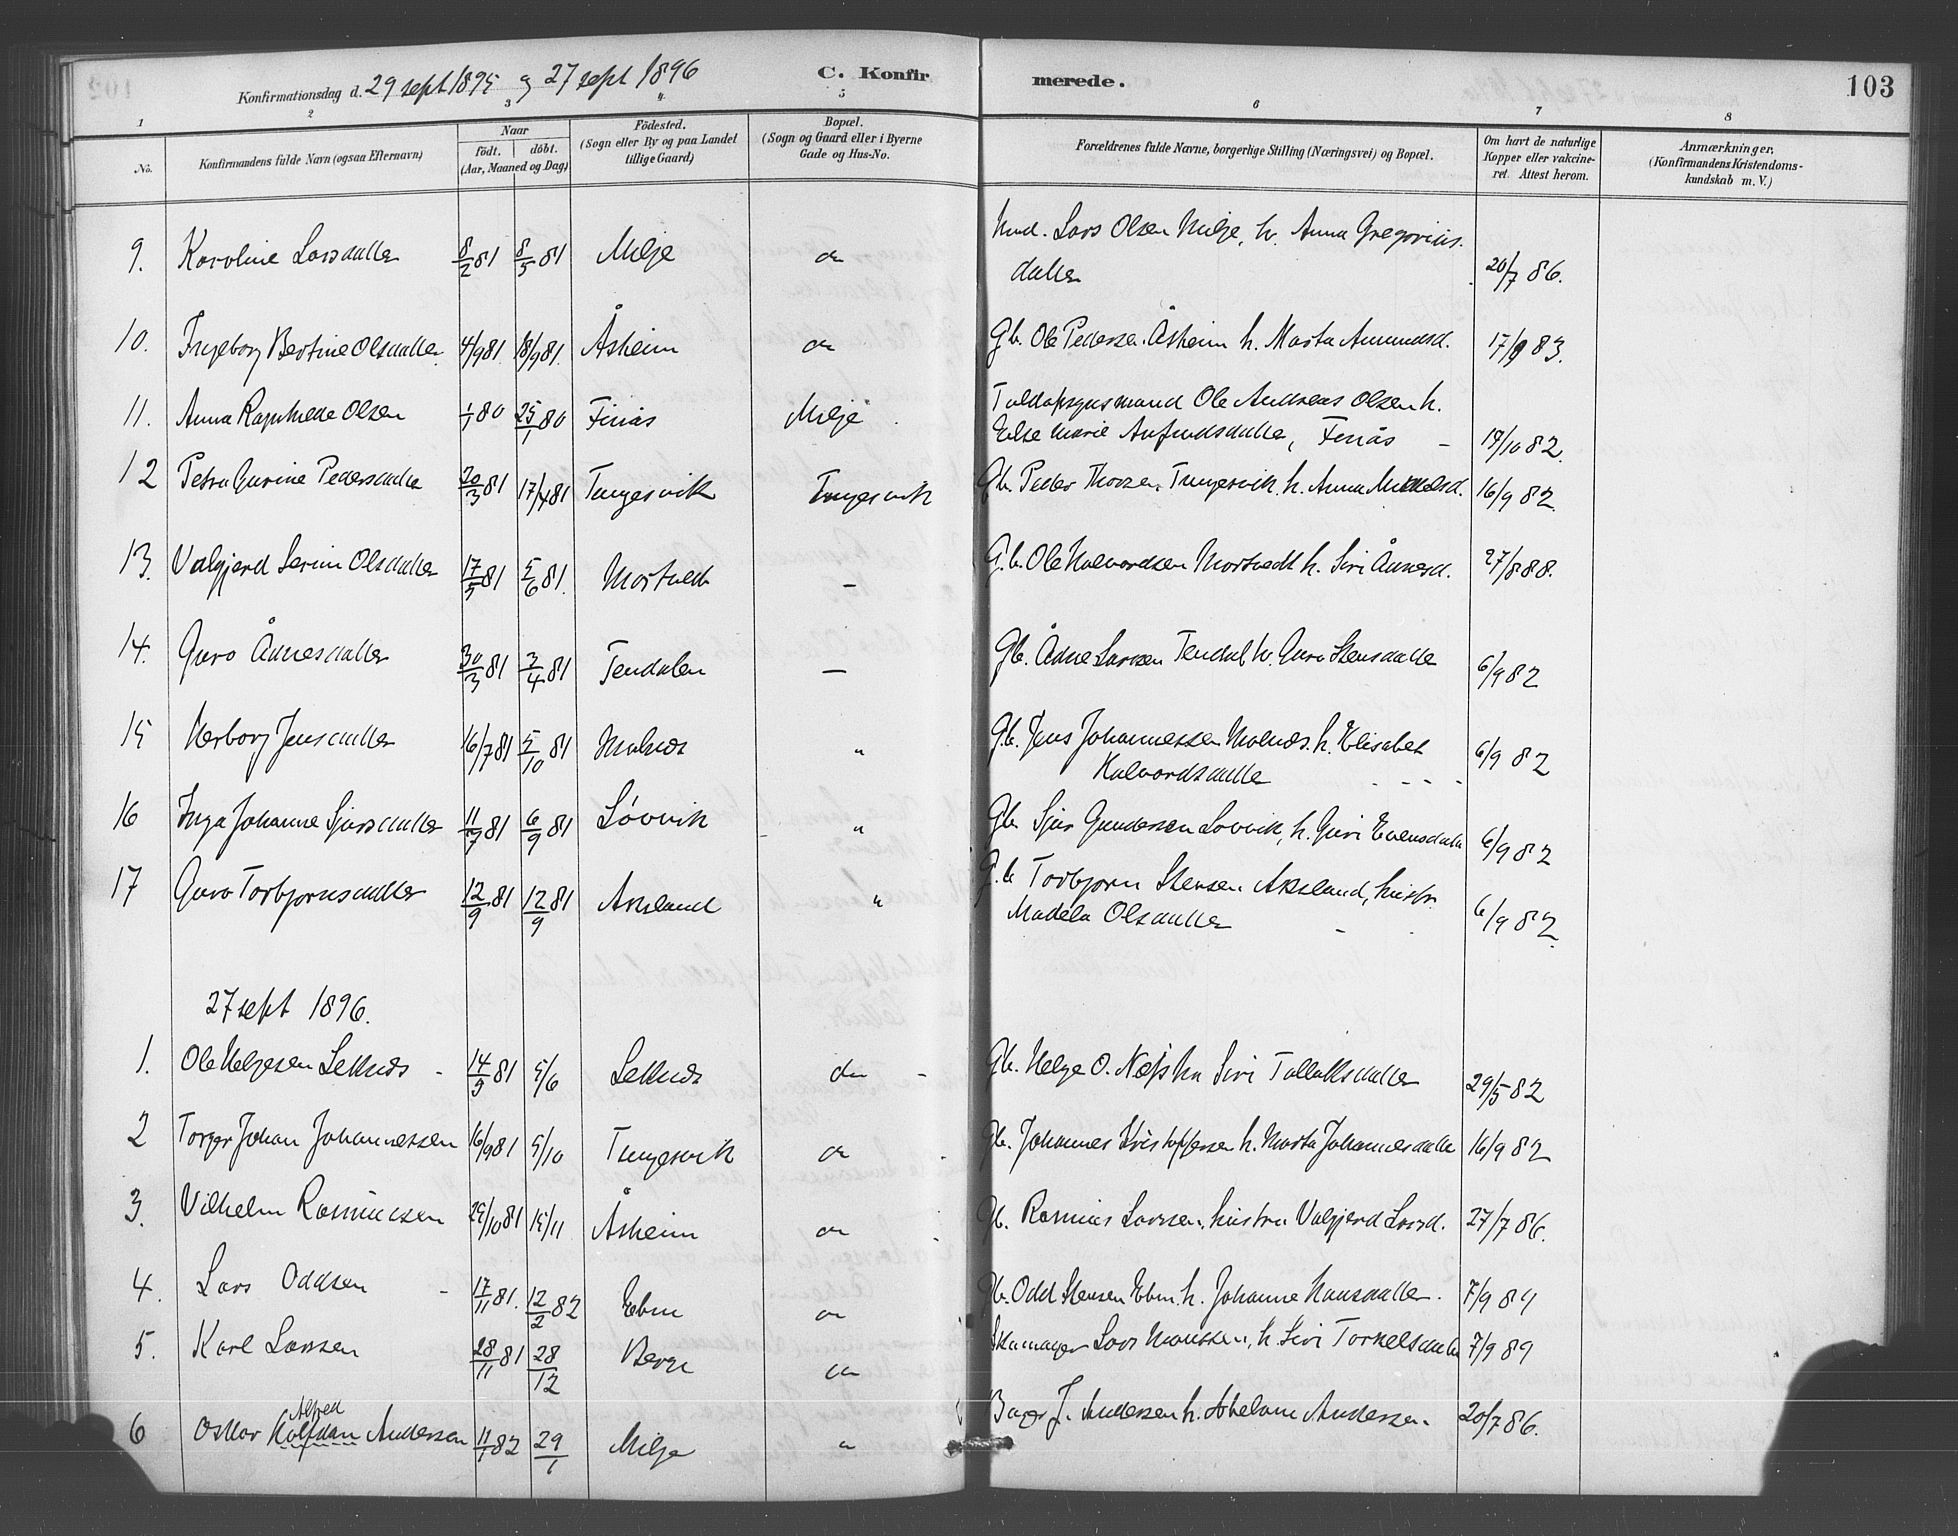 Konfirmationsdag d. 29 sept 1895 og 27 sept 1896 C. Konfirmerede. 103
1 2 3 4 5 6 7 8
No. Konfirmandens fulde Navn (ogsaa Efternavn) Naar födt. döbt. (Aar, Maaned og Dag) Födested. (Sogn eller By og paa Landet tillige Gaard) Bopæl. (Sogn og Gaard eller i Byerne Gade og Hus-No. Forældrenes fulde Navne, borgerlige Stilling (Næringsvei) og Bopæl. Om havt de naturlige Kopper eller vakcineret. Attest herom. Anmærkninger, (Konfirmandens Kristendomskundskab m. V.)
9. Karoline Larsdatter 8/2 81 8/5 81 Milje do Lars Olsen Milje, h. Anna Gregorius-
datter 20/7 86.
10. Ingeborg Bertine Olsdatter 4/9 81 18/9 81. Åsheim do Gb. Ole Pedersen Åsheim h. Marta Amundsd. 17/9 83.
11. Anna Olsen 1/1 80 25/1 80 Finås Milje Toldopsynsmand Ole Andreas Olsen h.
Else Marie , Finås 19/10 82.
12 Petra Gurine Pedersdatter 20/3 81 17/4 81 Tungesvik Tungesvik Gb. Peder Thorsen Tungesvik h. Anna 16/9 82.
13. Valgjerd Serine Olsdatter 17/5 81 5/6 81. Mortvedt – G.b. Ole Halvordsen Mortvedt h. Siri Ånnesd. 27/8 88.
14. Guro Ådnesdatter 30/3 81 3/4 81 Tendalen – Gb. Ådne Larsen Tendal h. Guro Stensdatter 6/9 82
15 Herborg Jensdatter 16/7 81 5/10 81 Malnæs " Gb. Jens Johannessen Malnæs. h. Elisabet
Halvordsdatter 6/9 82
16 Inga Johanne Sjursdatter 11/7 81 6/9 81 Løvvik " Gb. Sjur Gundersen Løvvik, h. Guri Evensdatter 6/9 82
17 Guro Torbjørnsdatter 12/9 81 12/9 81 Aksland " G.b. Torbjørn Stensen Aksland, hustr.
Madela Olsdatter 6/9 82.
27 sept 1896.
1. Ole Helgesen Leknæs 14/5 81 5/6 Leknæs do Gb. Helge O. Siri Tollaksdatter 29/5 82
2 Torger Johan Johannessen 16/9 81 5/10 Tungesvik do Gb. Johannes Kristoffersen h. Marta Johannesdatter 16/9 82
3. Vilhelm Rasmussen 29/10 81 15/11 Åsheim do Gb. Rasmus Larsen, hustru Valgjerd Larsd. 27/7 86.
4. Lars Oddsen 17/11 81. 12/2 82 Ebne do Gb. Odd Stensen Ebne h. Johanne Hansdatter. 7/9 89
5. Karl Larsen 28/11 81 28/12 Berge do Skomager Lars Monssen, h. Siri Torkelsdatter 7/9 89
Alfred
6 Oskar Halfdan Andersen 11/1 82 29/1 Milje " Bager J. Andersen h. Andersen. 20/7 86.